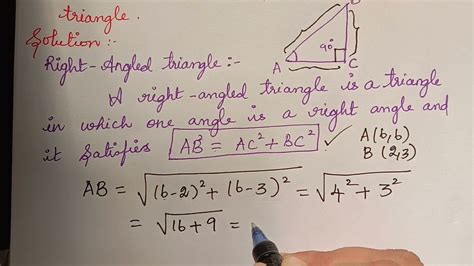 triangle.
Solution:-
90°
A C
Right-Angled triangle:-
A right-angled triangle is a triangle
in which one angle is a right angle and
it satisfies AB² = AC² + BC² ✓ A(6,6)
B (2,3)
AB = √(6-2)² + (6-3)² = √4² + 3²
= √16 + 9 =